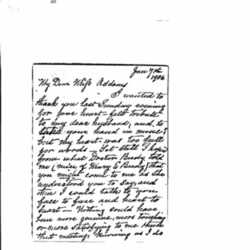 Jan 7th
1906
My Dear Miss Addams
I wanted to
thank you last Sunday evening
for your heart-felt tribute
to my dear husband, and to
take your hand in mine!
but my heart was too full
for words —
from what Doctor
told
me (
you might come to me as she
understood you to say, and
then I could talk to you
face to face and heart to
heart — Nothing could have
been more genuine, more touching
or more satisfying to me than
that meeting. Knowing as I do